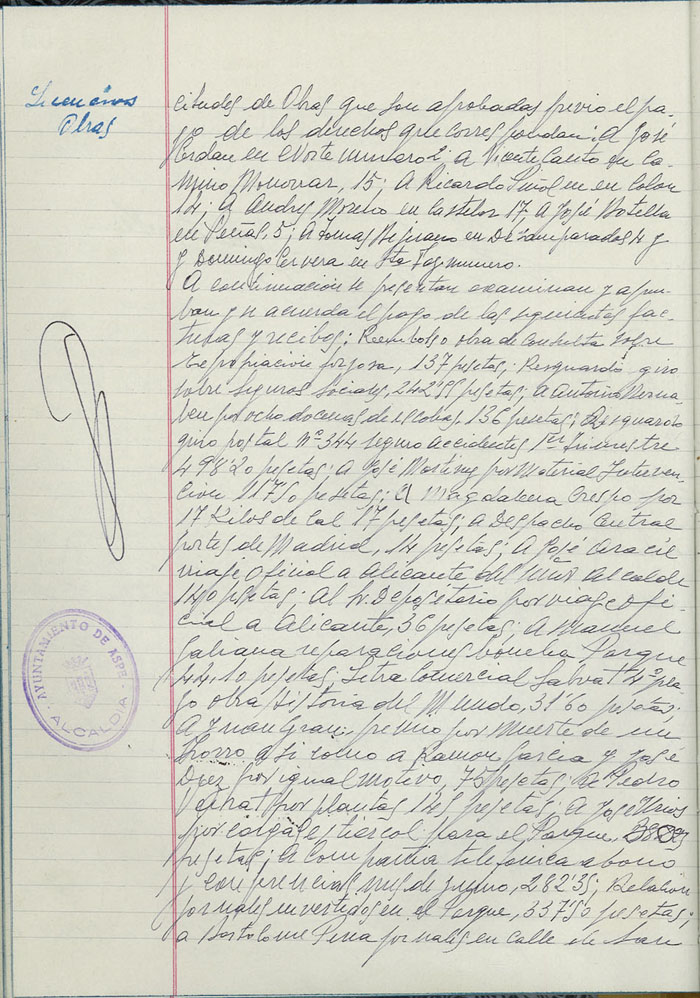 Licencias
Obras
citudes de Obras que son aprobadas previo el pa-
go de los derechos que correspondan: A José
Cerdan en Norte numero 2; A Vicente Cantó en Ca-
mino Monovar, 15; A Ricardo Piñol en en Colon
14; A Andres Moreno en Castelar 17, A José Botella
en Peñas, 5; A Tomas en Desamparados 4 y
y Domingo Cervera en Sta Faz numero.
A continuación se presentan examinan y aprue-
ban y se acuerda el pago de las siguientes fac-
turas y recibos; Reembolso obra de consulta sobre
Expropiación forzosa, 137 pesetas; Resguardo giro
sobre Seguros Sociales, 242'55 pesetas; A Antonio Berna-
beu por ocho docenas de escobas, 136 pesetas; Resguardo
giro postal Nº 344 seguro accidentes 1er Trimestre
498'20 pesetas; A José Martinez por Material Interven-
ción 11750 pesetas; A Magdalena Crespo por
17 Kilos de Cal 17 pesetas; A Despacho Central
portes de Madrid, 14 pesetas; A José
viaje Oficial a Alicante del Señor Alcalde
pesetas; Al Sr Depositario por viaje Ofi-
cial a Alicante, 36 pesetas; A Manuel
Galiana reparaciones bomba Parque
44,10 pesetas; Letra Comercial Salvat 4º pa-
go obra Historia del Mundo, 31'60 pesetas;
A Juan Grau, premio por muerte de un
Zorro asi como a Ramon Garcia y José
Diez por igual motivo, 75 pesetas; A Pedro
por plantas 145 pesetas; A José Urios
por cargas estiercol para el Parque,
pesetas; A Compañia telefonica abono
y conferencias mes de Junio, 282'35; Relación
jornales invertidos en el Parque, 33750 pesetas;
a Bartolome Peria jornales en Calle de San
AYUNTAMIENTO DE ASPE
ALCALDÍA